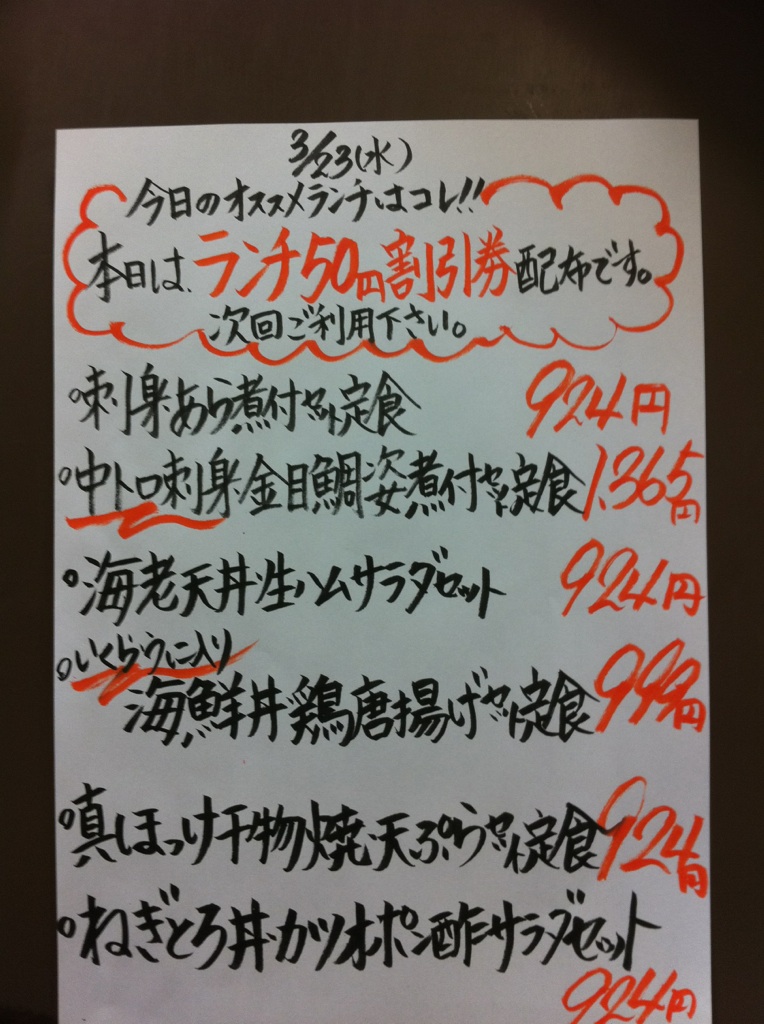 3/23(水)
今日のオススメランチはコレ!!
本日は、ランチ50円割引券配布です。
次回ご利用下さい。
。刺身あら煮付セット定食 924円
。中トロ刺身金目鯛姿煮付セット定食 1,365円
。海老天丼生ハムサラダセット 924円
。いくらうに入り
海鮮丼鶏唐揚げセット定食 999円
。真ほっけ干物焼天ぷらセット定食 924円
。ねぎとろ丼カツオポン酢サラダセット
924円